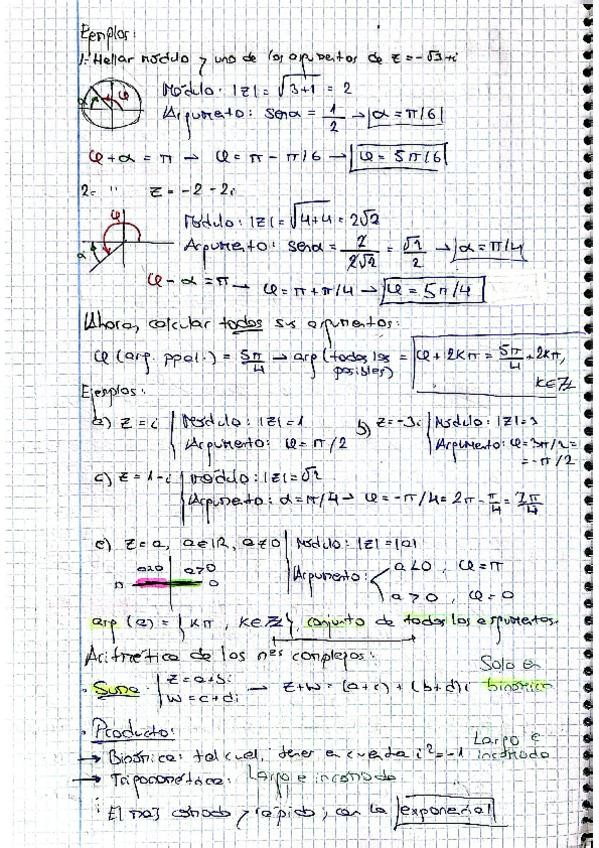 Ejemplos:
1. Hallar módulo y uno de los argumentos de z = -√3+i
Módulo: |z| = √3+1 = 2
Argumento: senα = 1/2 → α = π/6
φ+α = π → φ = π - π/6 → φ = 5π/6
2- " z = -2-2i
Módulo: |z| = √4+4 = 2√2
Argumento: senα = 2/2√2 = √2/2 → α = π/4
φ - α = π → φ = π+π/4 → φ = 5π/4
Ahora, calcular todos sus argumentos:
φ (arg. ppal.) = 5π/4 → arg (todos los posibles) = φ + 2kπ = 5π/4 + 2kπ, k∈ℤ
Ejemplos:
a) z = i | Módulo: |z| = 1
Argumento: φ = π/2
b) z = -3i | Módulo: |z| = 3
Argumento: φ = 3π/2 =
= -π/2
c) z = 1-i | Módulo: |z| = √2
Argumento: α = π/4 → φ = -π/4 = 2π - π/4 = 7π/4
e) z = a, a∈ℝ, a≠0 | Módulo: |z| = |a|
a<0 a>0
π 0
Argumento: a<0, φ = π
a>0, φ = 0
arg (a) = {kπ, k∈ℤ}, conjunto de todos los argumentos.
Aritmética de los nºs complejos:
· Suma: z = a+bi
w = c+di → z+w = (a+c) + (b+d)i
Solo en binómica
· Producto:
→ Binómica: tal cual, tener en cuenta i² = -1 Largo e incómodo
→ Trigonométrica: Largo e incómodo
¡ El más cómodo y rápido, con la exponencial